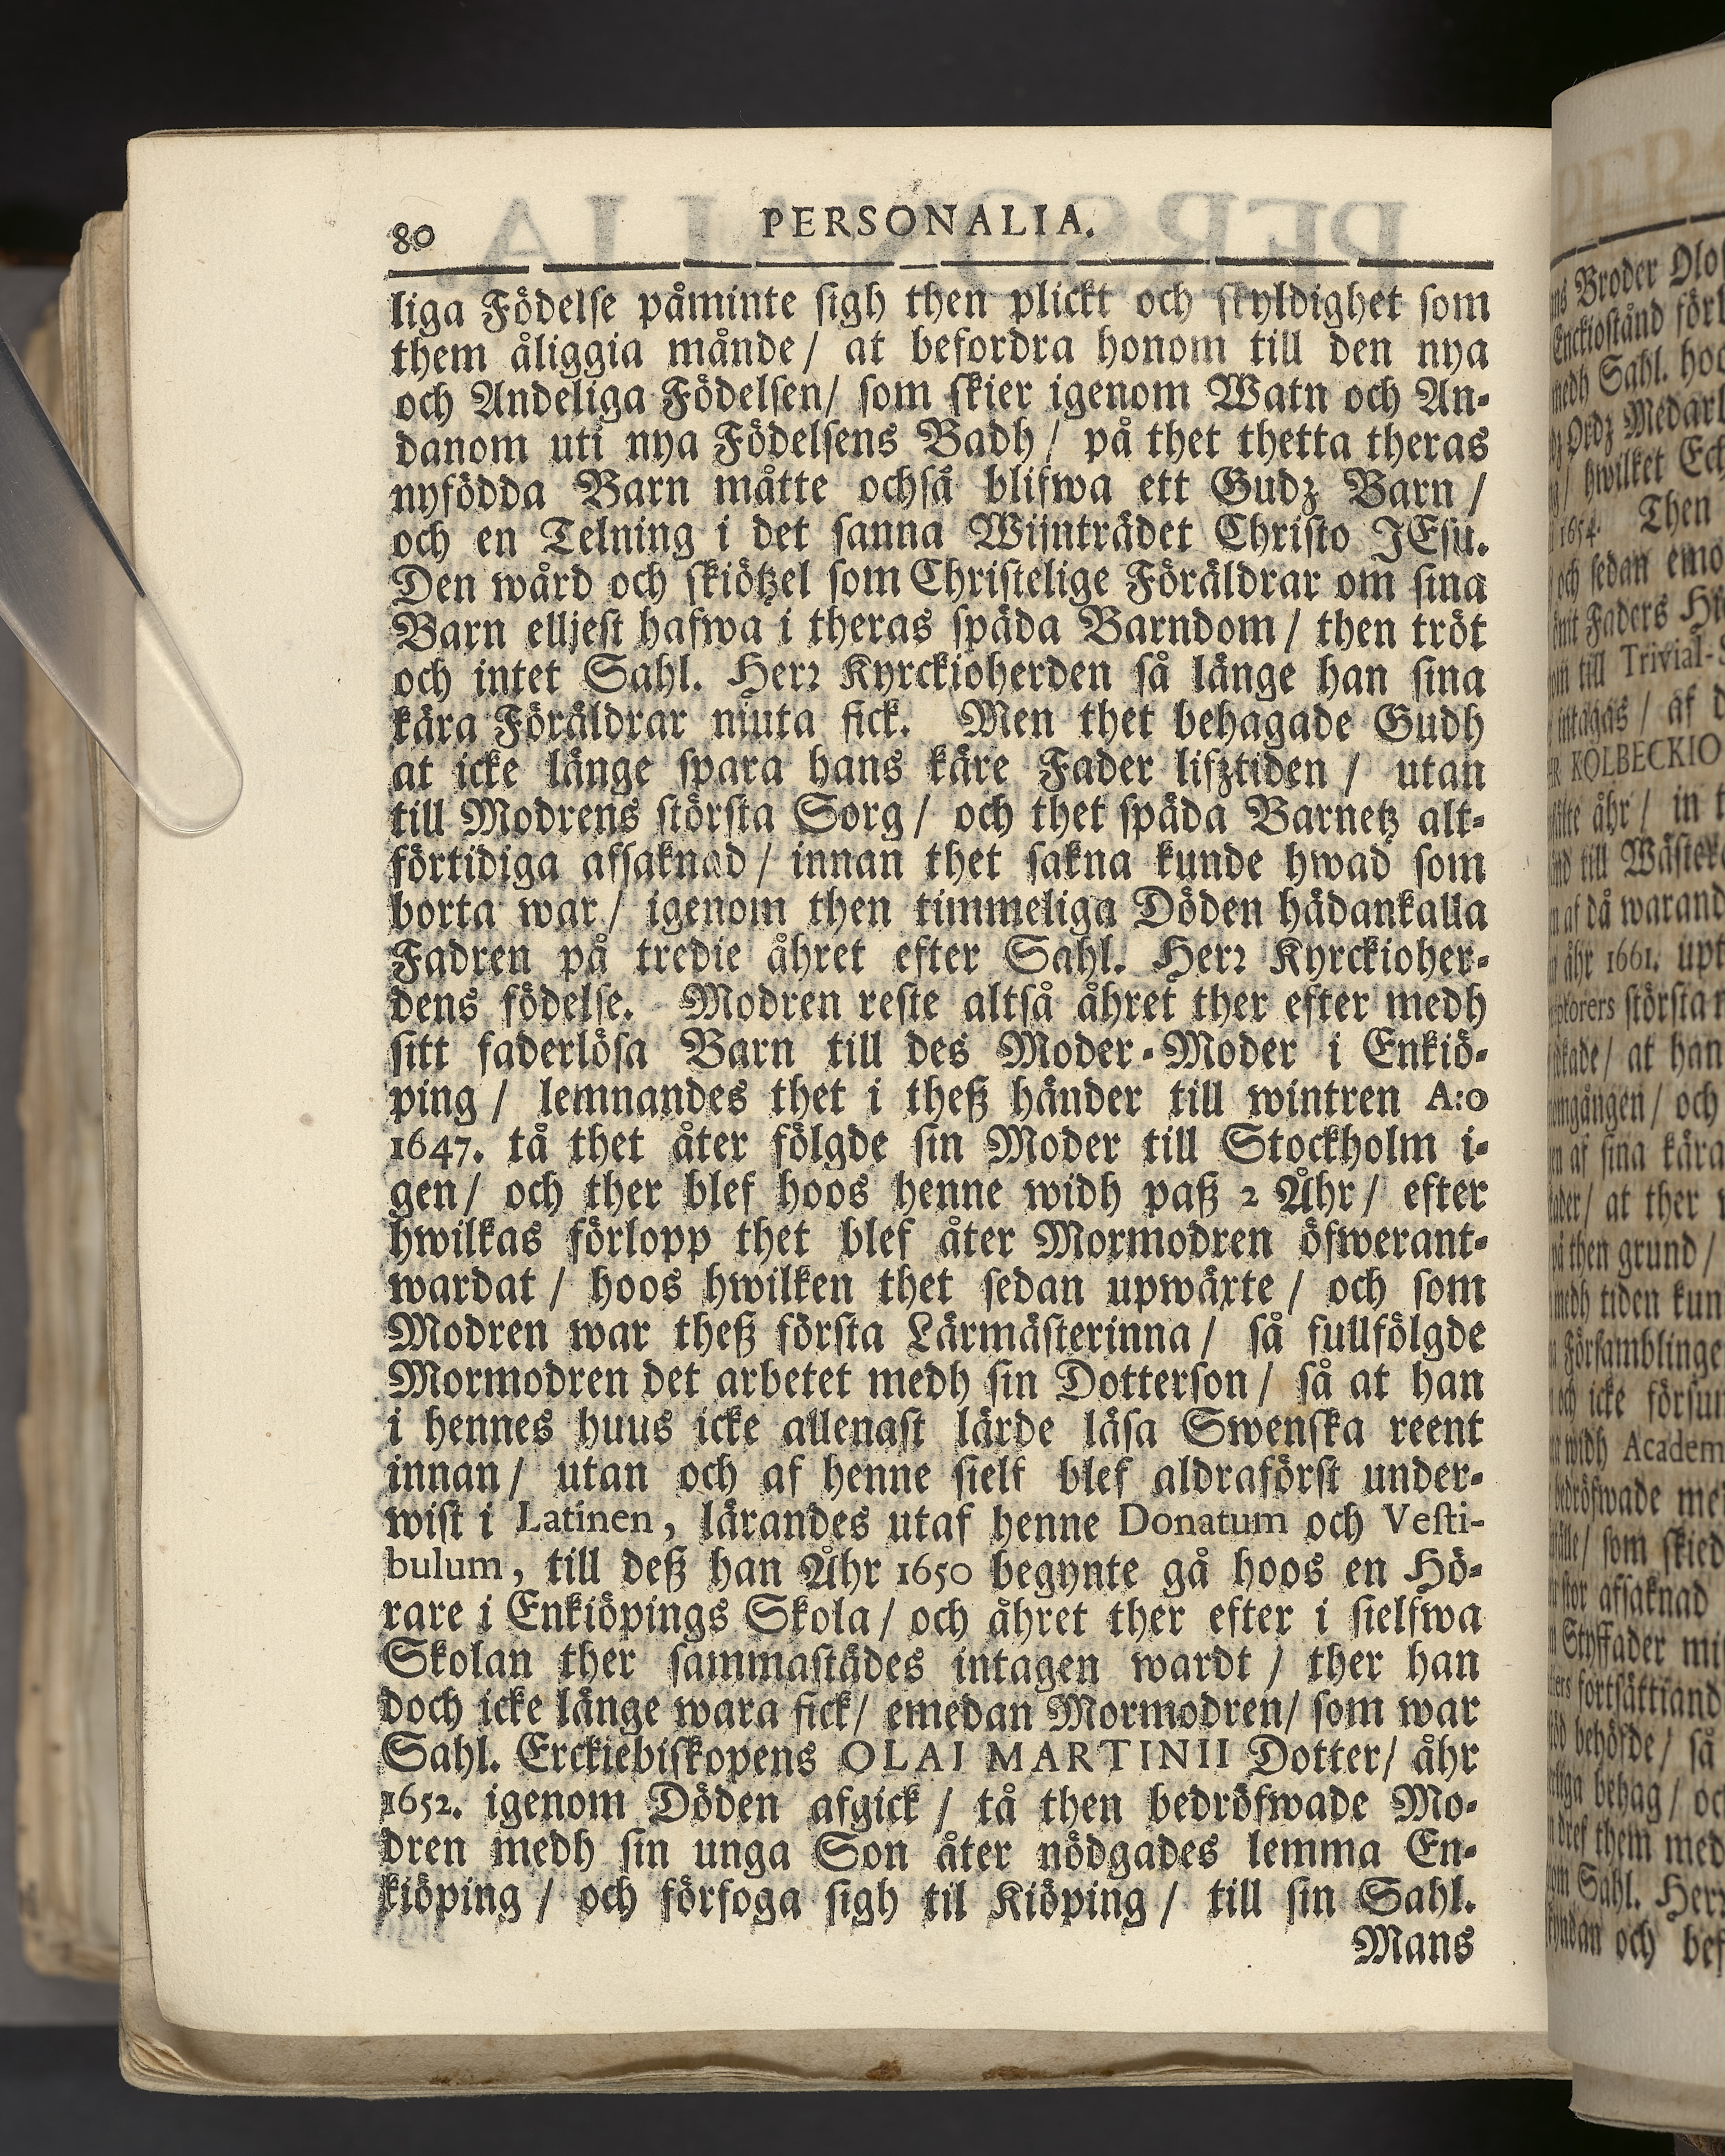 80 PERSONALIA.
liga Födelse påminte sigh then plickt och skyldighet som
them åliggia månde / at befordra honom till den nya
och Andeliga Födelsen / som skier igenom Watn och An-
danom uti nya Födelsens Badh / på thet thetta theras
nyfödda Barn måtte ochså blifwa ett Gudz Barn /
och en Telning i det sanna Wijnträdet Christo JEsu.
Den wård och skiötzel som Christelige Föräldrar om sina
Barn elljest hafwa i theras späda Barndom / then tröt
och intet Sahl. Herr Kyrckioherden så länge han sina
kära Föräldrar niuta fick. Men thet behagade Gudh
at icke länge spara hans käre Fader lifztiden / utan
till Modrens största Sorg / och thet späda Barnetz alt-
förtidiga afsaknad / innan thet sakna kunde hwad som
borta war / igenom then timmeliga Döden hädankalla
Fadren på tredie åhret efter Sahl. Herr Kyrckioher-
dens födelse. Modren reste altså åhret ther efter medh
sitt faderlösa Barn till des Moder-Moder i Enkiö-
ping / lemnandes thet i theß händer till wintren A:o
1647. tå thet åter fölgde sin Moder till Stockholm i-
gen / och ther blef hoos henne widh paß 2 Åhr / efter
hwilkas förlopp thet blef åter Mormodren öfwerant-
wardat / hoos hwilken thet sedan upwäxte / och som
Modren war theß första Lärmästerinna / så fullfölgde
Mormodren det arbetet medh sin Dotterson / så at han
i hennes huus icke allenast lärde läsa Swenska reent
innan / utan och af henne sielf blef aldraförst under-
wist i Latinen, lärandes utaf henne Donatum och Vesti-
bulum, till deß han Åhr 1650 begynte gå hoos en Hö-
rare i Enkiöpings Skola / och åhret ther efter i sielfwa
Skolan ther sammastädes intagen wardt / ther han
doch icke länge wara fick / emedan Mormodren / som war
Sahl. Erckiebiskopens OLAI MARTINII Dotter / åhr
1652. igenom Döden afgick / tå then bedröfwade Mo-
dren medh sin unga Son åter nödgades lemma En-
kiöping / och förfoga sigh til Kiöping / till sin Sahl.
Mans